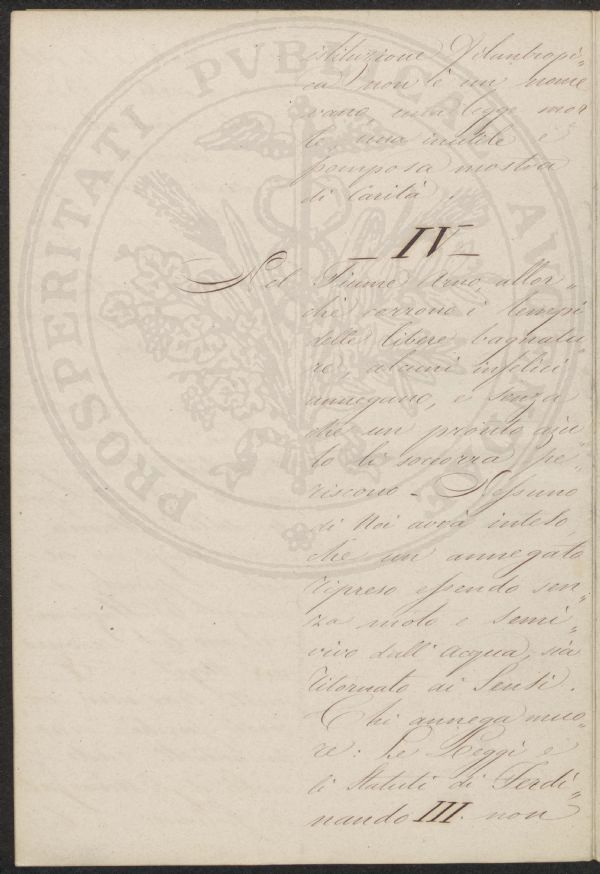 PROSPERITATI PUBLICAE AUGENDAE
istituzione Filantropi„
ca non è un nome
vano, una legge mor„
ta, una inutile e
pomposa mostra
di Carità.
— IV —
Nel Fiume Arno, allor„
chè corrono i tempi
delle libere bagnatu„
re, alcuni infelici
annegano, e senza
che un pronto aju„
to li soccorra pe„
riscono – Nessuno
di Noi avrà inteso,
che un annegato
ripreso essendo sen„
za moto e semi„
vivo dall' acqua, sia
ritornato ai Sensi.
Chi annega muo„
re: Le Leggi e
li Statuti di Ferdi„
nando III. non